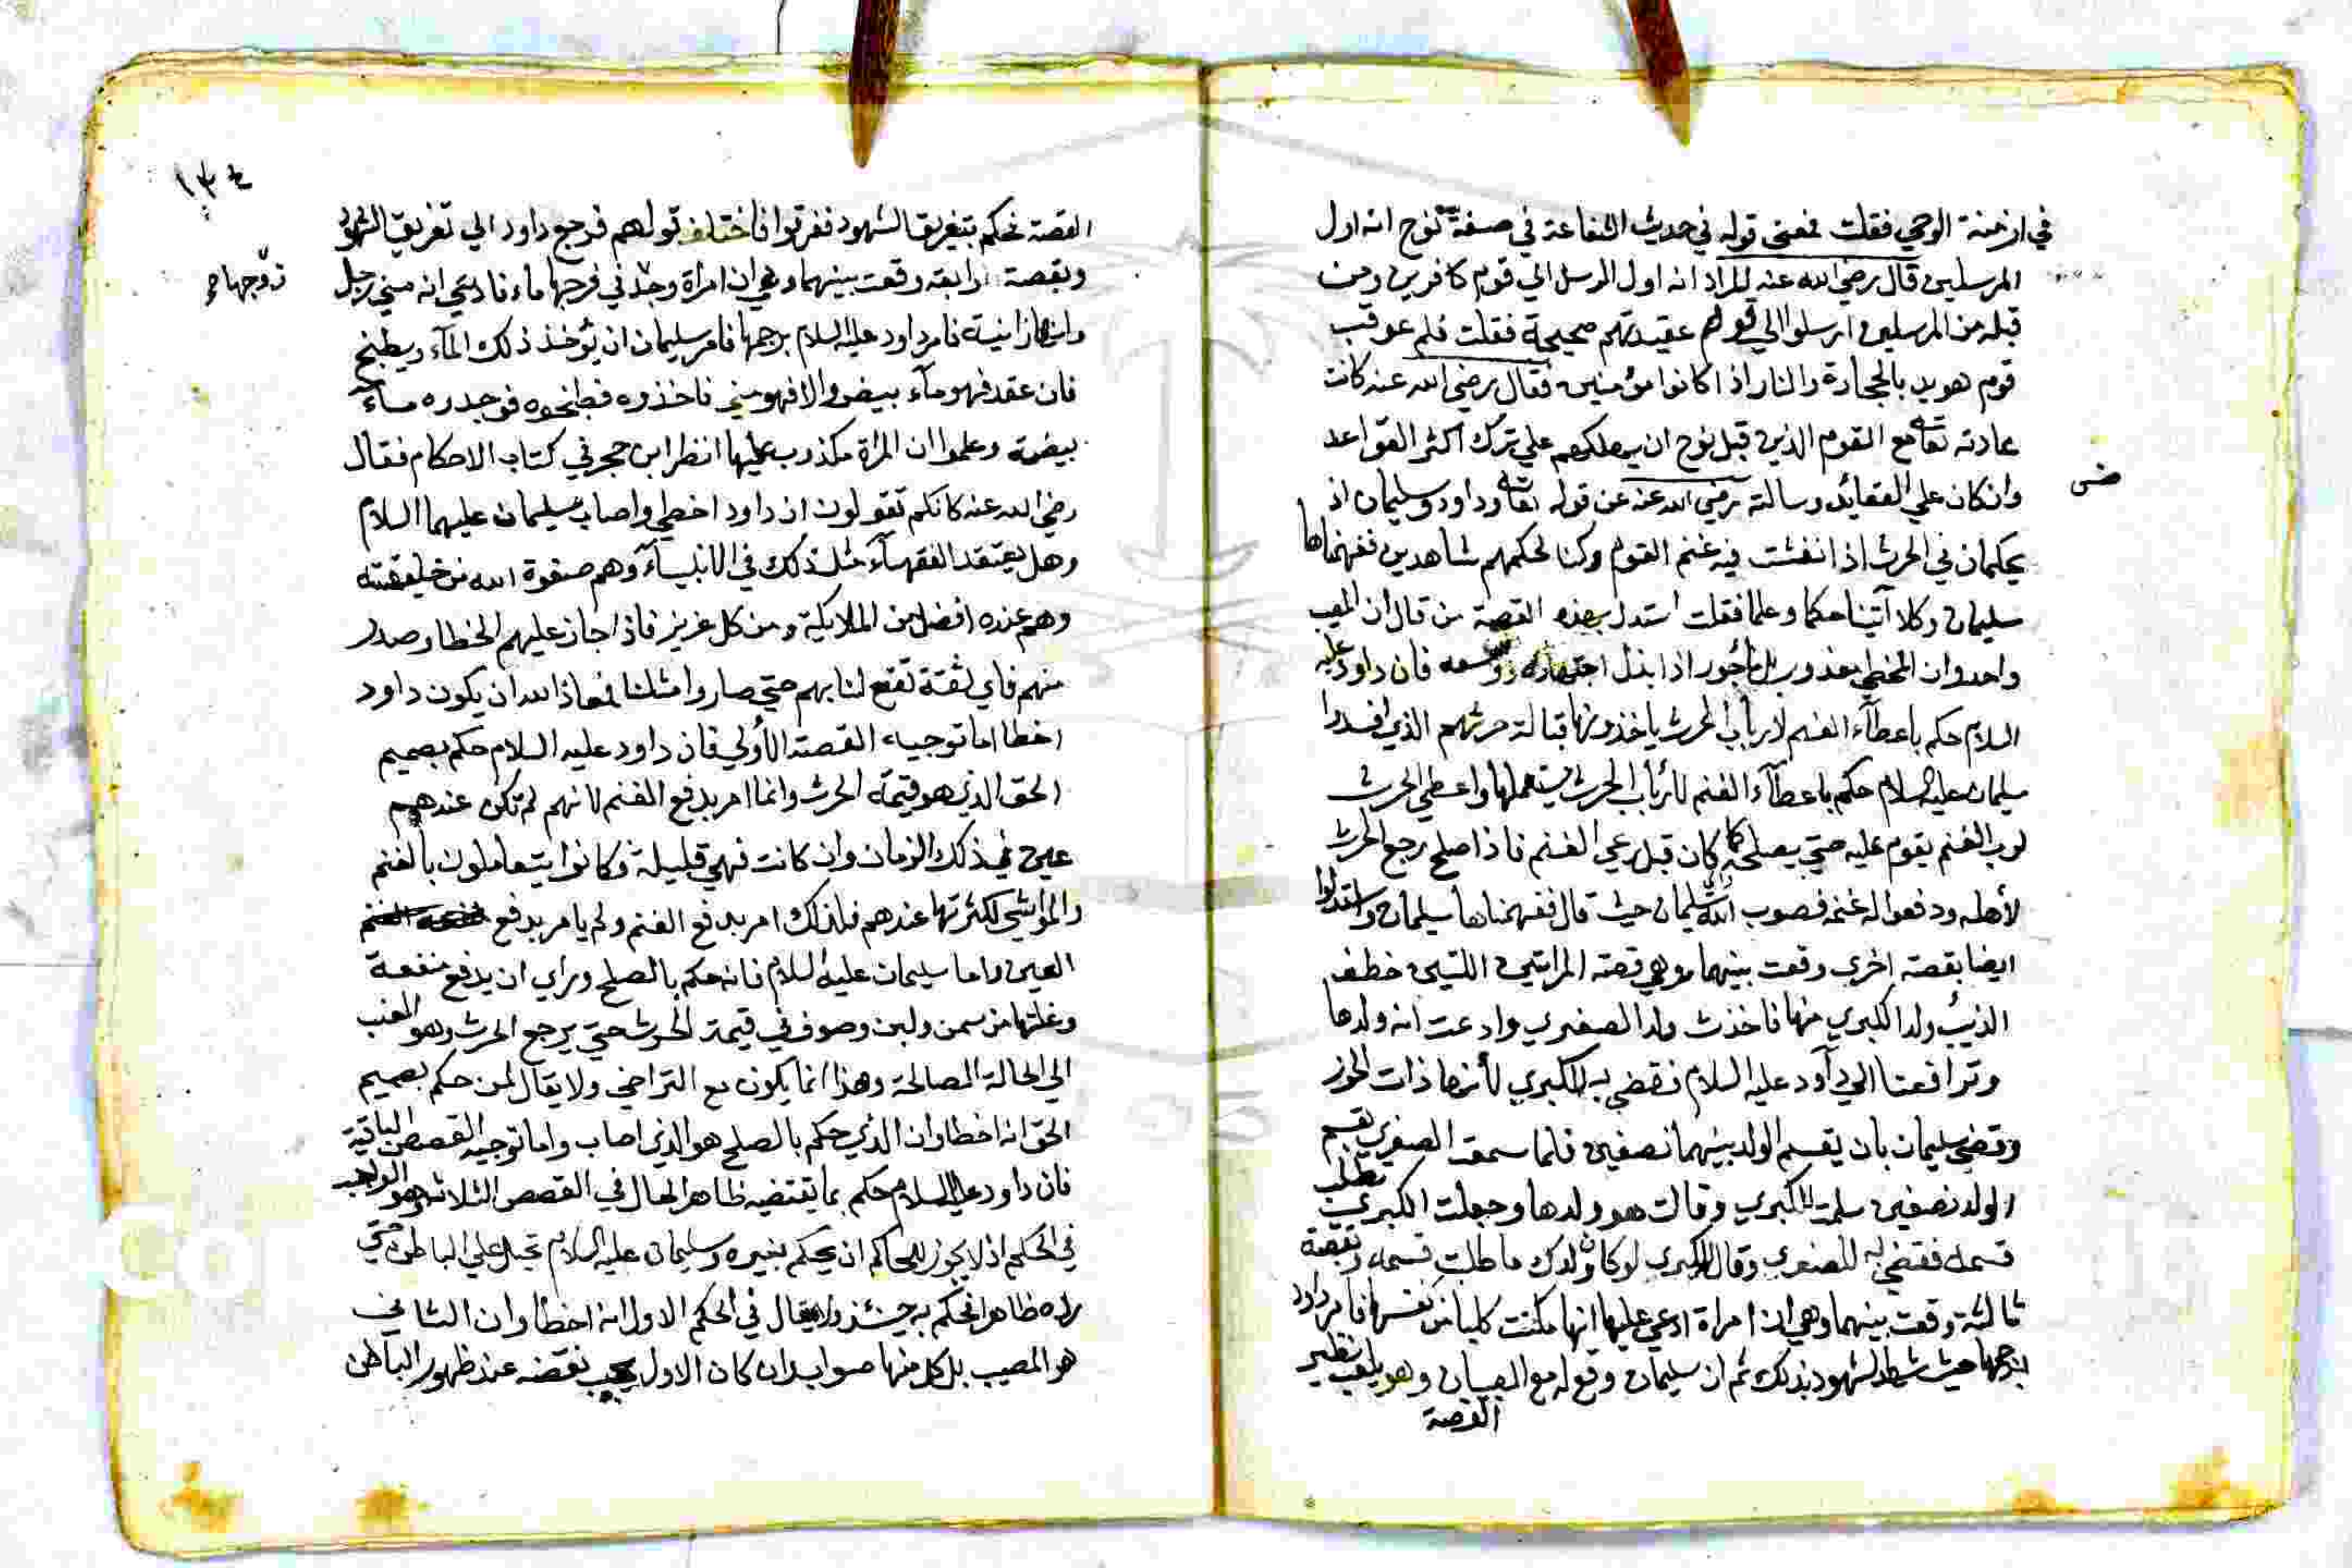 في ازمنة الوحي فقلت فمعنى قوله في حديث الشفاعة في صفة نوح انه اول
المرسلين قال رضي الله عنه المراد انه اول المرسل الي قوم كافرين ومن
قبله من المرسلين ارسلوا الي قوم عقيدتهم صحيحة فقلت فلم عوقب
قوم هويد بالحجارة والنار اذا كانوا مؤمنين فقال رضي الله عنه كانت
عادته تعالى مع القوم الذين قبل نوح ان يهلكهم علي ترك اكثر القواعد
وان كان علي العقائد وسالته رضي الله عنه عن قوله تعالى وداود وسليمان اذ
ضى
يحكمان في الحرث اذ انفشت فيه غنم القوم وكنا لحكمهم شاهدين ففهمناها
سليمان وكلا آتينا حكما وعلما فقلت استدل بهذه القصة من قال ان المصيب
واحد وان المخطي معذور بل مأجور اذا بذل اجتهاده ووسعه فان داود عليه
السلام حكم باعطآء الغنم لارباب الحرث ياخذونها قبالة حرثهم الذي افسدوا
سليمان عليه السلام حكم باعطآء الغنم لأرباب الحرث يستعملها واعطي الحرث
لرب الغنم يقوم عليه حتي يصلح كما كان قبل رعي الغنم فاذا اصلح رجع الحرث
لأهله ودفعوا له غنمه فصوب الله سليمان حيث قال ففهمناها سليمان واستدلوا
ايضا بقصة اخري وقعت بينهما وهي قصة المراتين اللتين خطف
الذيب ولد الكبري منها فاخذت ولد الصغيري وادعت انه ولدها
وترافعتا الي دآود عليه السلام فقضي به للكبري لأنها ذات الحوز
وقضي سليمان بان يقسم الولد بينهما نصفين فلما سمعت الصغري بقسم
الولد نصفين سلمت للكبري وقالت هو ولدها وجعلت الكبري تطلب
قسمه فقضي به للصغري وقال للكبري لو كان ولدك ما طلبت قسمه وبقصة
ثالثة وقعت بينهما وهي ان امراة ادعي عليها انها مكنت كلبا من نفسها فامر داود
برجمها حيث شهد الشهود بذلك ثم ان سليمان وقع له مع الصبيان وهو يلعب نظير
القصة
١٣٤
القصة فحكم بتفريق الشهود ففرقوا فاختلف قولهم فرجع داود الي تفريق الشهود
وبقصة رابعة وقعت بينهما وهي ان امراة وجد في فرجها ماء فادعي انه مني رجل
زوجها
وانها زانية فامر داود عليه السلام برجمها فامر سليمان ان يؤخذ ذلك المآء ويطبخ
فان عقد فهو مآء بيض والا فهو مني فاخذوه فطبخوه فوجدره مآء
بيضة وعلموا ان المرأة مكذوب عليها انظر ابن حجر في كتاب الاحكام فقال
رضي الله عنه كانكم تقولون ان داود اخطي واصاب سليمان عليهما السلام
وهل يعتقد الفقهآء مثل ذلك في الانبيآء وهم صفوة الله من خليقته
وهم عنده افضل من الملايكة ومن كل عزيز فاذا جاز عليهم الخطا وصدر
منهم فاي ثقة تقع لنا بهم حتي صاروا مثلنا فمعاذ الله ان يكون داود
اخطا اما توجيه القصة الأولي فان داود عليه السلام حكم بصميم
الحق الذي هو قيمة الحرث وانما امر بدفع الغنم لانهم لم تكن عندهم
عين في ذلك الزمان وان كانت فهي قليلة وكانوا يتعاملون بالغنم
والمواشي لكثرتها عندهم فلذلك امر بدفع الغنم ولم يامر بدفع
العين واما سليمان عليه السلام فانه حكم بالصلح وراي ان يدفع منفعة
الغنم وغلتها من سمن ولبن وصوف في قيمة الحرث حتي يرجع الحرث وهو
الي الحالة المصالحة وهذا انما يكون مع التراضي ولا يقال لمن حكم بصميم
الحق انه اخطا وان الذي حكم بالصلح هو الذي اصاب واما توجيه القصص الباقية
فان داود عليه السلام حكم بما تقتضيه ظاهر الحال في القصص الثلاث وهو الواجب
في الحكم اذ لا يجوز للحاكم ان يحكم بغيره وسليمان عليه السلام تحيل علي الباطن حتي
راه ظاهرا فحكم به حينئذ ولا يقال في الحكم الاول انه اخطأ وان الثاني
هو المصيب بل كل منها صواب وان كان الاول يجب نقضه عند ظهور الباطن